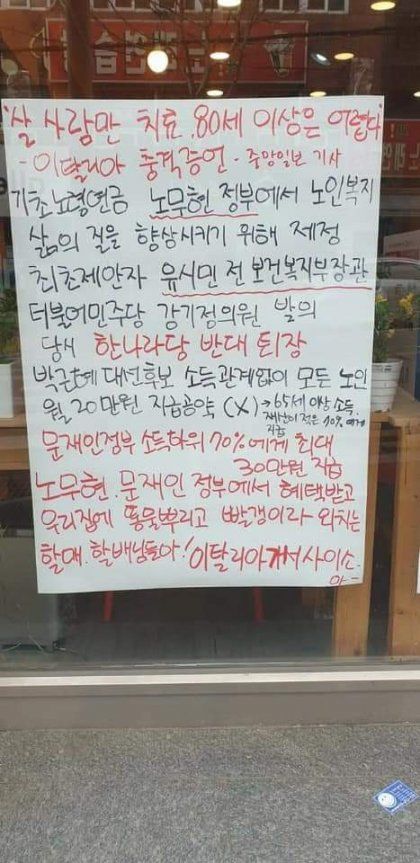 노래연습장
"살 사람만 치료. 80세 이상은 어렵다"
- 이탈리아 충격증언 - 중앙일보 기사
기초노령연금 노무현 정부에서 노인복지
삶의 질을 향상시키기 위해 제정
최초제안자 유시민 전 보건복지부장관
더불어민주당 강기정의원 발의
당시 한나라당 반대 퇴장
박근혜 대선후보 소득관계없이 모든 노인
월 20만원 지급공약 (X) → 65세 이상 소득.
재산이 적은 70%에게
지급
문재인정부 소득하위 70%에게 최대
30만원 지급
노무현. 문재인 정부에서 혜택받고
우리집에 똥물뿌리고 빨갱이라 외치는
할매. 할배님들아! 이탈리아가서 사이소
마-